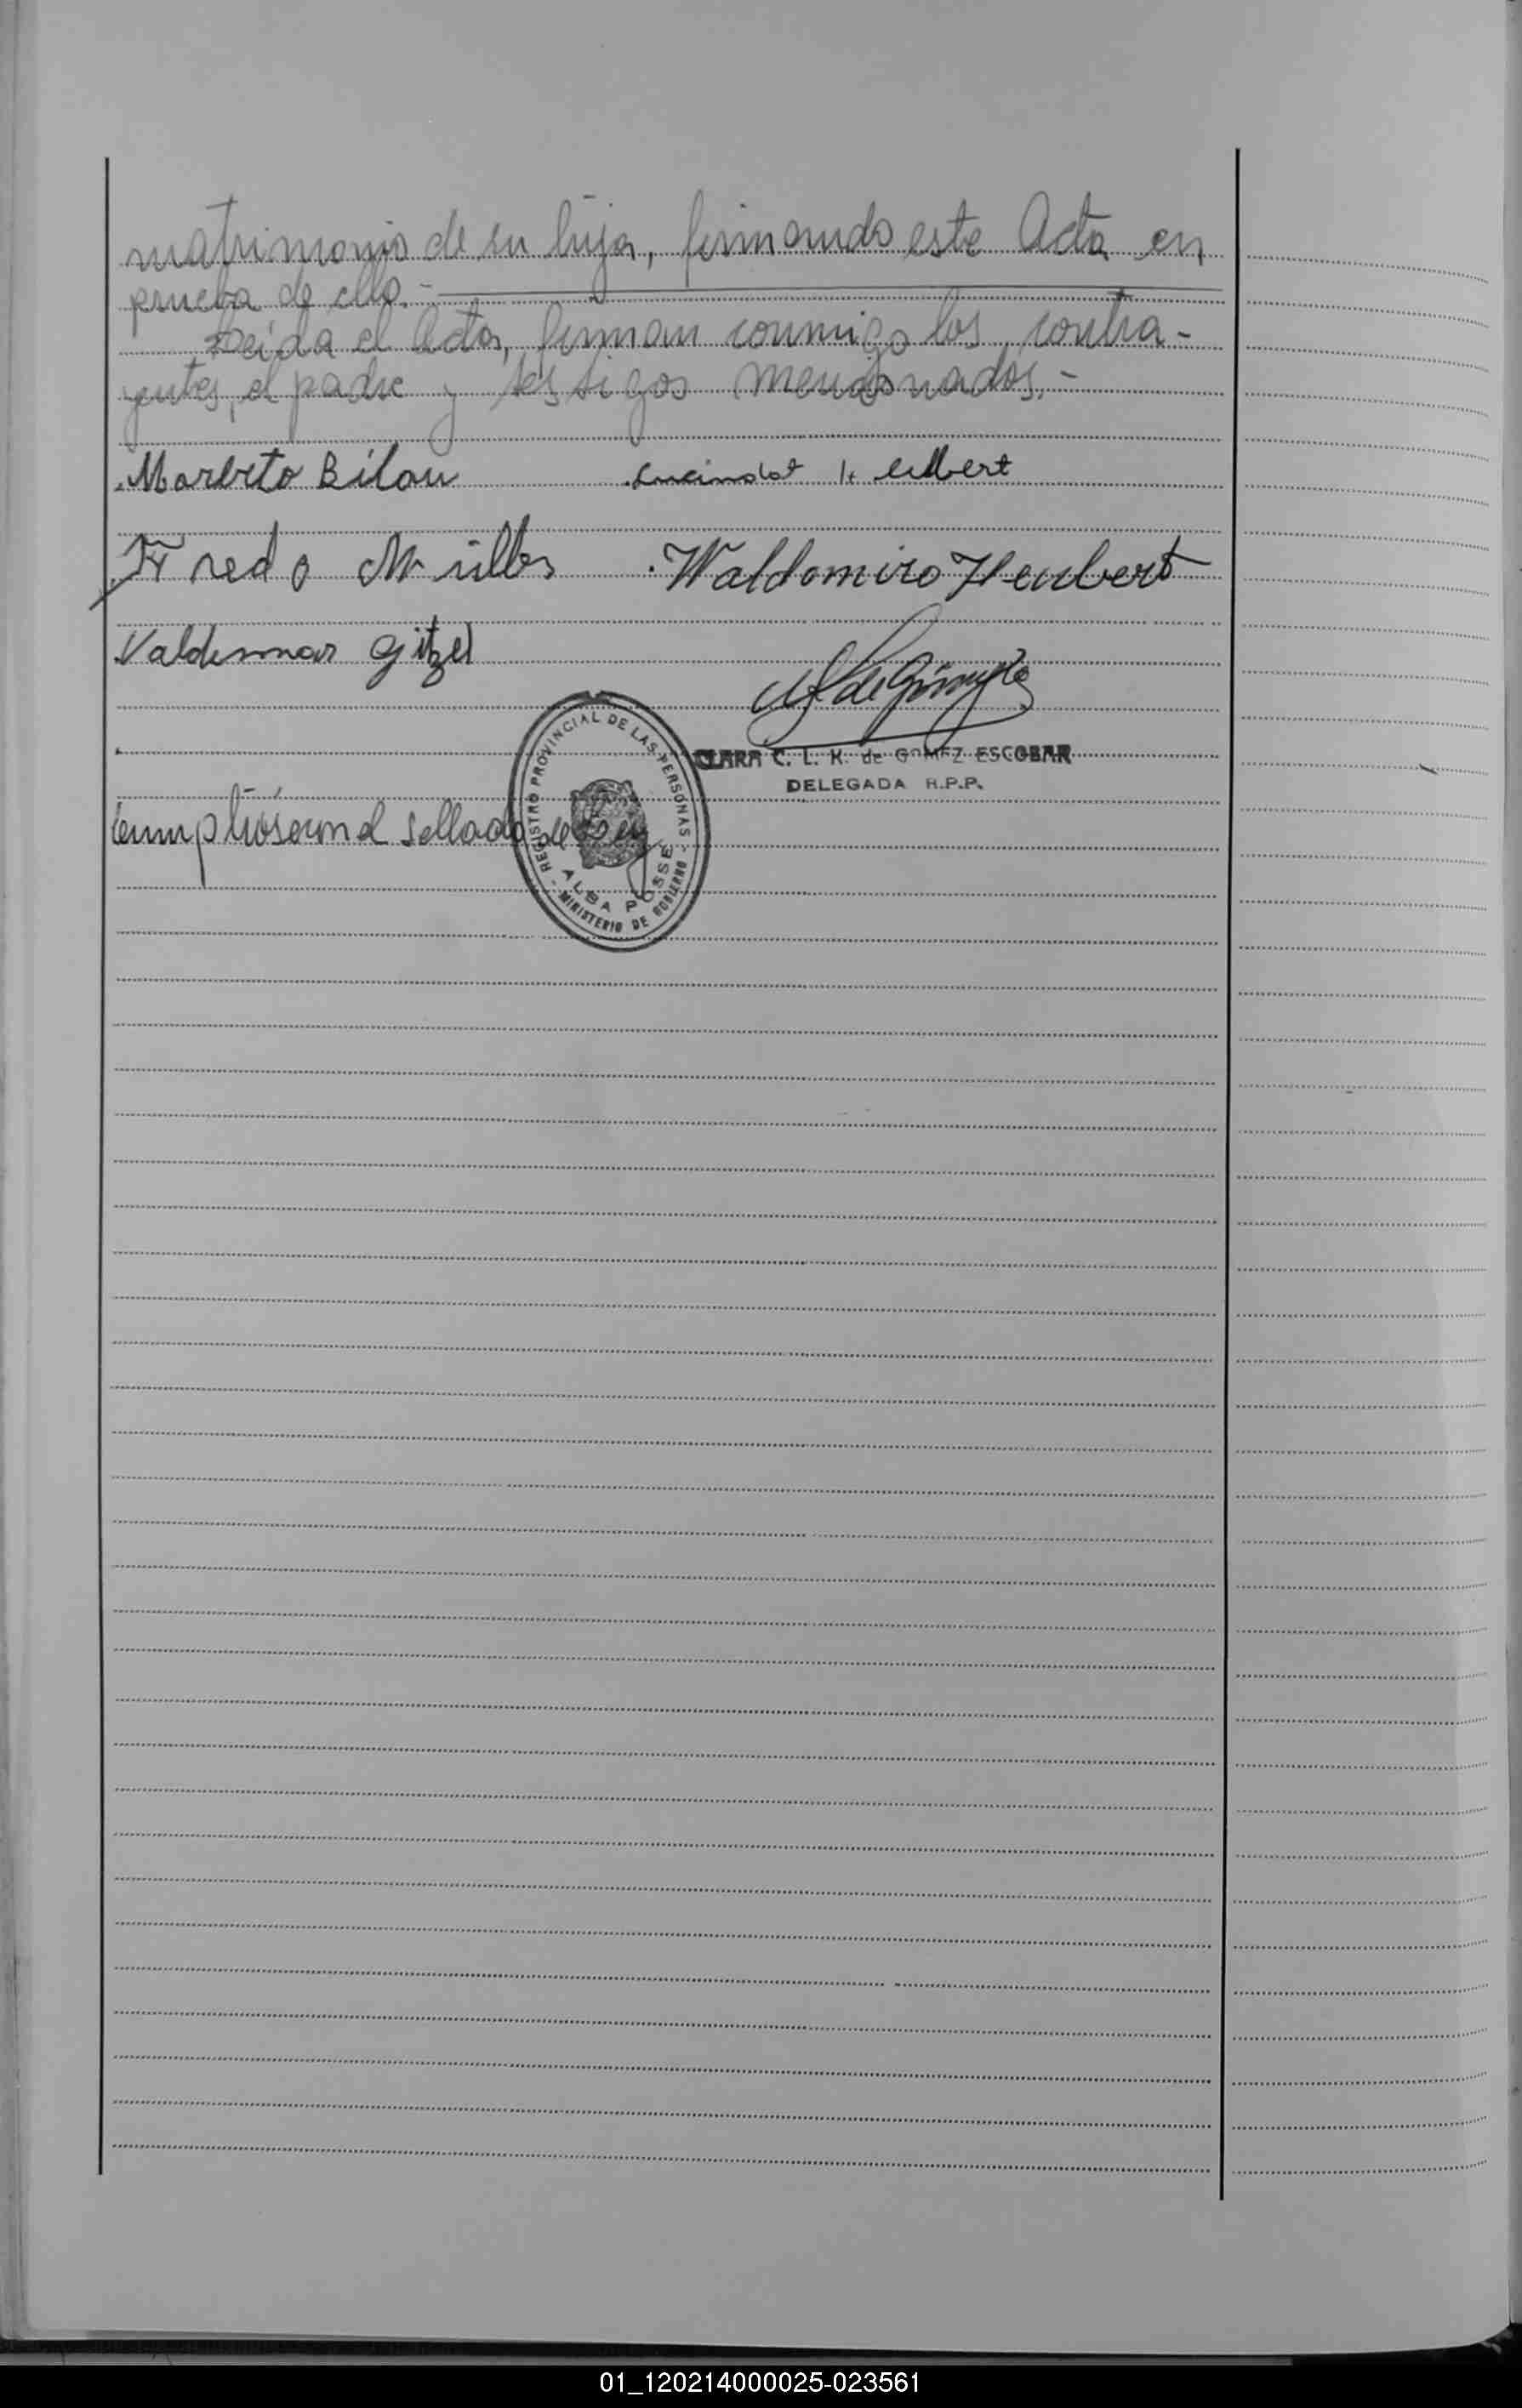 matrimonio de su hija, firmando este Acta en
prueba de ello.-
Leida el Acta, firman conmigo los contra-
yentes, el padre y testigos mencionados.-
Marbrto Bilau Lucinda Heubert
Fredo Müller Waldomiro Heubert
Valdemar Gitzel
CLARA C. L. K. de GOMEZ ESCOBAR
DELEGADA R.P.P.
REGISTRO PROVINCIAL DE LAS PERSONAS - MINISTERIO DE GOBIERNO -
ALBA POSSE
Cumplióse con el Sellado de Ley
01_120214000025-023561